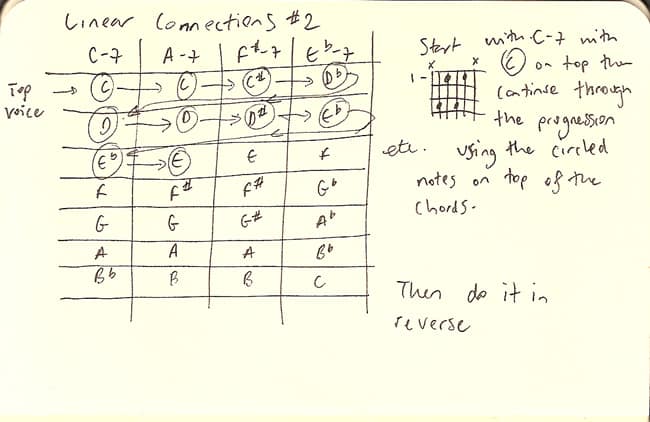 Linear Connections #2
C-7 A-7 F#-7 Eb-7
Top voice → C → C → C# → Db
D → D → D# → Eb
Eb → E E F
F F# F# Gb
G G G# Ab
A A A Bb
Bb B B C
Start with C-7 with
x x C on top then
1- continue through
the progression
etc. using the circled
notes on top of the
chords.
Then do it in
reverse